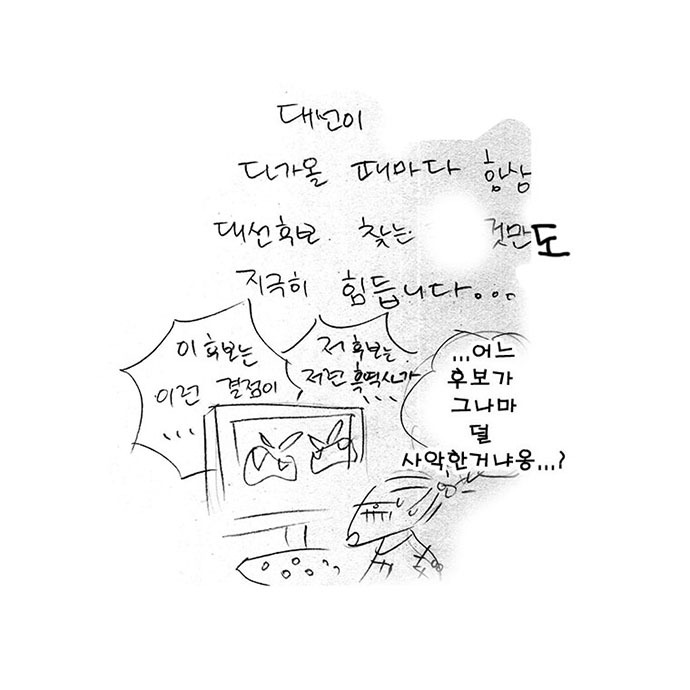 대선이
다가올 때마다 항상
대선후보 찾는 것만도
지극히 힘듭니다...
이 후보는
이런 결점이
...
저 후보는
저런 흑역사가
....
...어느
후보가
그나마
덜
사악한거냐옹...?